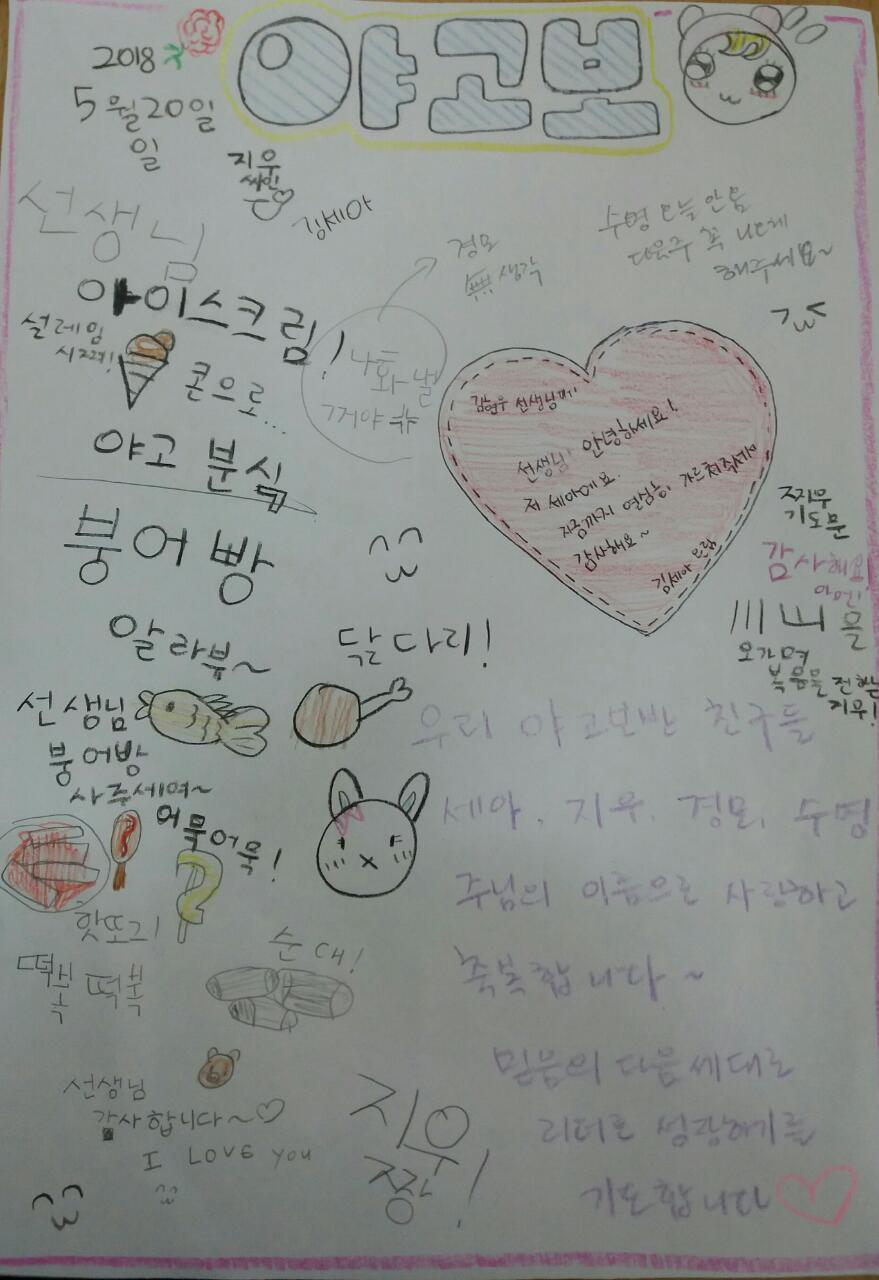 야고보
2018
5월20일
일
지우
싸인
김세아
선생님
수영 오늘 안옴
다음주 꼭 나오게
해주세요~
경모
無 생각
아이스크림!
설레임
시져!
콘으로...
나좀
그거야
야고 분식
붕어빵
김현우 선생님께
선생님! 안녕하세요!
저 세아에요.
지금까지 열심히 가르쳐주셔서
감사해요~
김세아 올림
지우
기도문
감사해요!
아멘
오가며
복음을 전하는
지우!
알라뷰~
닭다리!
선생님
붕어빵
사주세여~
어묵어묵!
핫또그!
떡볶
떡볶
순대!
우리 야고보반 친구들
세아, 지우, 경모, 수영
주님의 이름으로 사랑하고
축복합니다~
믿음의 다음세대로
리더로 성장하기를
기도합니다
선생님
감사합니다~
I LOVE YOU
지우
짱!